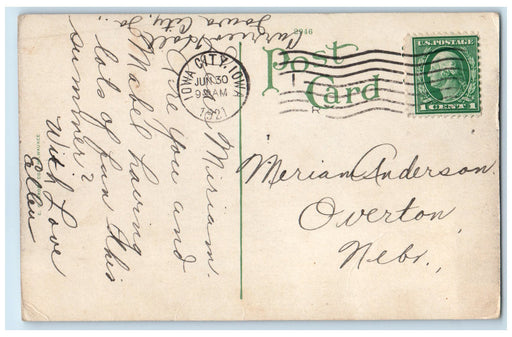 2946
Post Card
U.S. POSTAGE
1 CENT 1
IOWA CITY, IOWA
JUN 30
9 AM
1921
Hall
Iowa City, Ia.
Miriam.
Are you and
Mabel having
lots of fun this
summer?
With Love
Ellen
Meriam Anderson
Overton,
Nebr.,